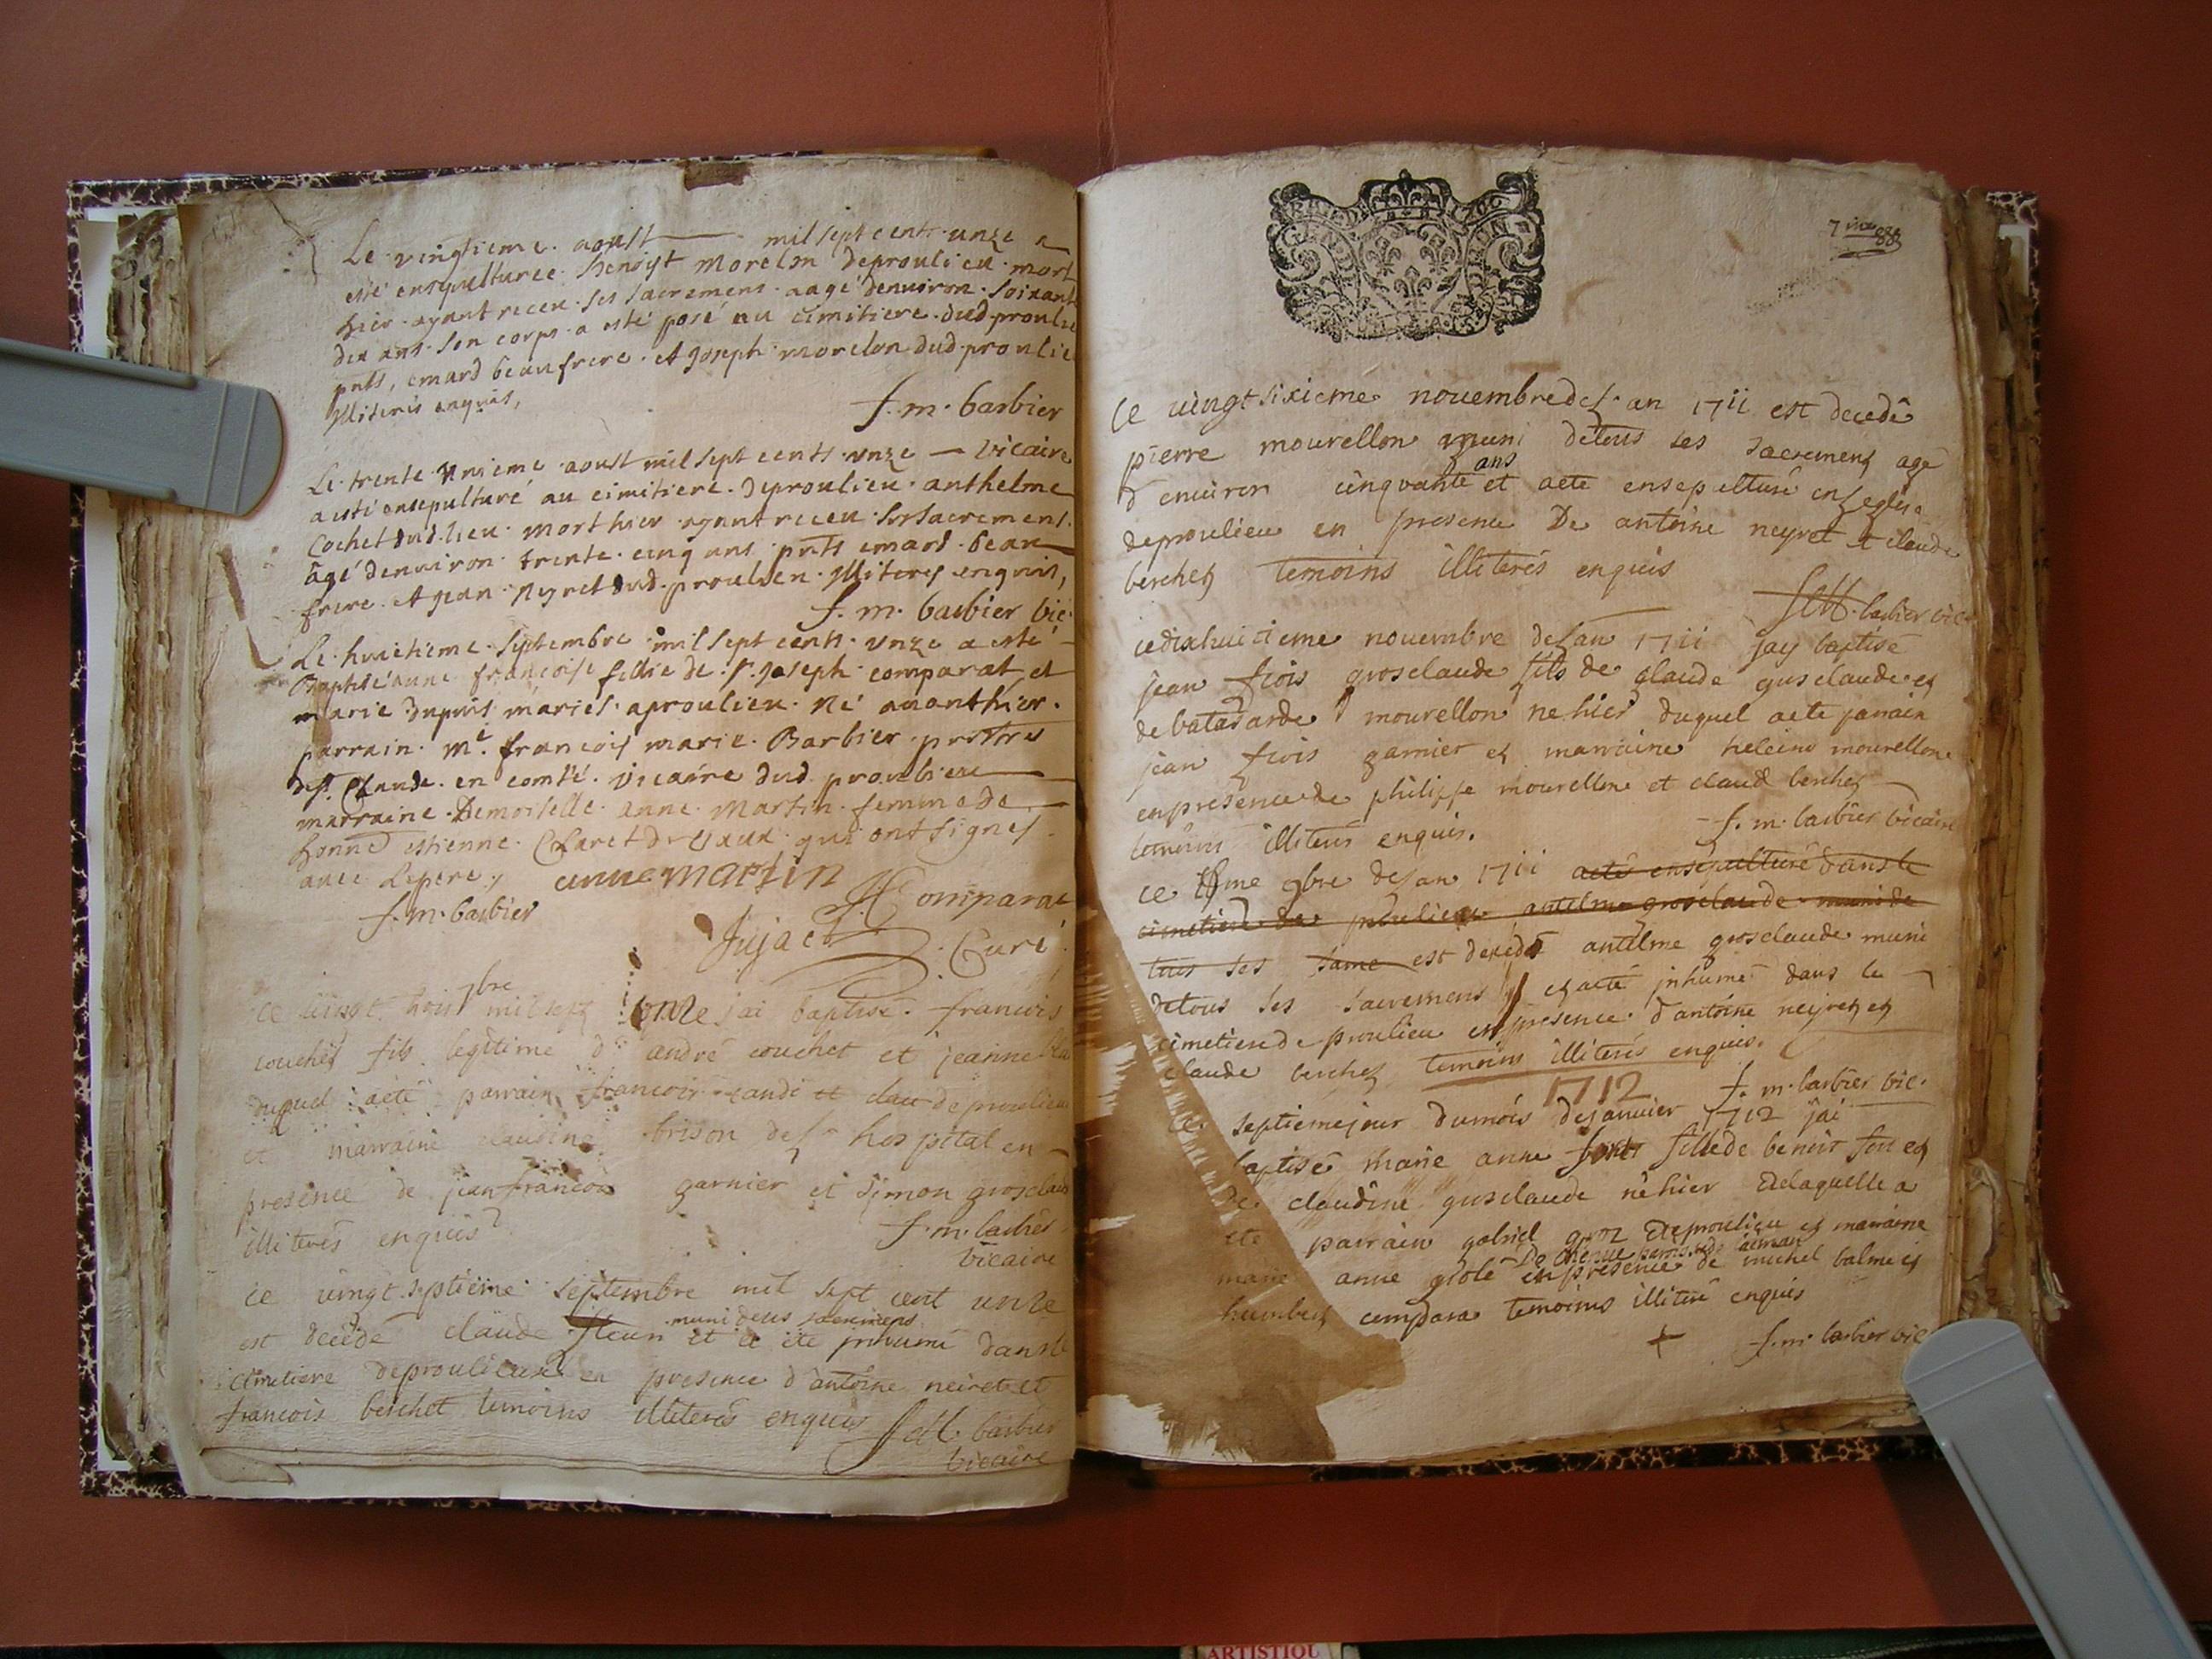 Le vingtieme aoust mil sept cents unze a
esté ensepulturée Benoyt Morelon deproulieu mort
hier ayant receu ses sacremens aagé denuiron soixante
dix ans son corps a esté posé au cimitiere dud proulieu
pnts, emard beaufrere et Joseph morelon dud proulie
Illiterés enquis,
f. m. barbier
Vicaire
Le trente unieme aoust mil sept cents unze
a esté ensepulturé au cimitiere deproulieu anthelme
Cochet dud lieu mort hier ayant receu ses sacremens
âgé denuiron trente cinq ans pnts emard beau
frere et jean Neyret dud proulieu Illiterés enquis,
f. m. barbier vic.
Le huictieme Septembre mil sept cents unze a esté
Baptisé anne françoise fillie de Sr joseph comparat et
marie dupuis mariés aproulieu Né auanthier
parrain Me françois marie Barbier prestre
de St Claude en comté vicaire dud
marraine Demoiselle anne Martin femme de
honne estienne Claret de Vaux qui ont signés
auec le pere,
anne martin
f. m. barbier
Comparat
Jujat Curé
Ce vingt trois 7bre mil sept onze jai baptisé francois
couchet fils legitime d andré couchet et jeanne
duquel aeté parrain francois et deproulieu
et marraine claudine brison de hospital en
presence de jean francois garnier et simon grosclaude
illiterés enquis
f. m. barbier
vicaire
ce vingt septieme septembre mil sept cent unze
est decedé claude fleur muni de ses sacremens et a ete inhumé dans le
cimetiere deproulieu en presence d'antoine neiret et
francois berchet temoins illiterés enquis
f M. barbier
vicaire
7
Ce vingt sixieme nouembre de l'an 1711 est decedé
pierre mourellon muni detous ses sacremens agé
d enuiron cinquante ans et aete ensepulturé en leglise
deproulieu en presence De antoine neyret et claude
berchet temoins illiterés enquis
f M. barbier vic.
ce dixhuitieme nouembre de l'an 1711 jay baptisé
jean frois grosclaude fils de glaude grosclaude et
de mourellon ne hier duquel aete parrain
jean frois garnier et marraine heleine mourellon
en presence de philippe mourellon et claud berchet
temoins illiterés enquis.
f. m. barbier vicaire
ce 9bre de l'an 1711 aeté ensépulturé dans le
cimetiere de proulieu antelme grosclaude muni de
tous ses est decedé antelme grosclaude muni
detous ses sacremens et aeté inhumé dans le
cimetiere de proulieu en presence d'antoine neyret et
claude berchet temoins illiterés enquis.
1712
f. m. barbier vic.
Ce septieme jour dumois de januier 1712 jai
baptisé marie anne fille de benoit et
de claudine grosclaude né hier De laquelle a
eté parrain gabriel Deproulieu et marraine
marie anne en presence de michel balme et
humbert compara temoins illiteré enquis
f. m. barbier vic
ARTISTIQU